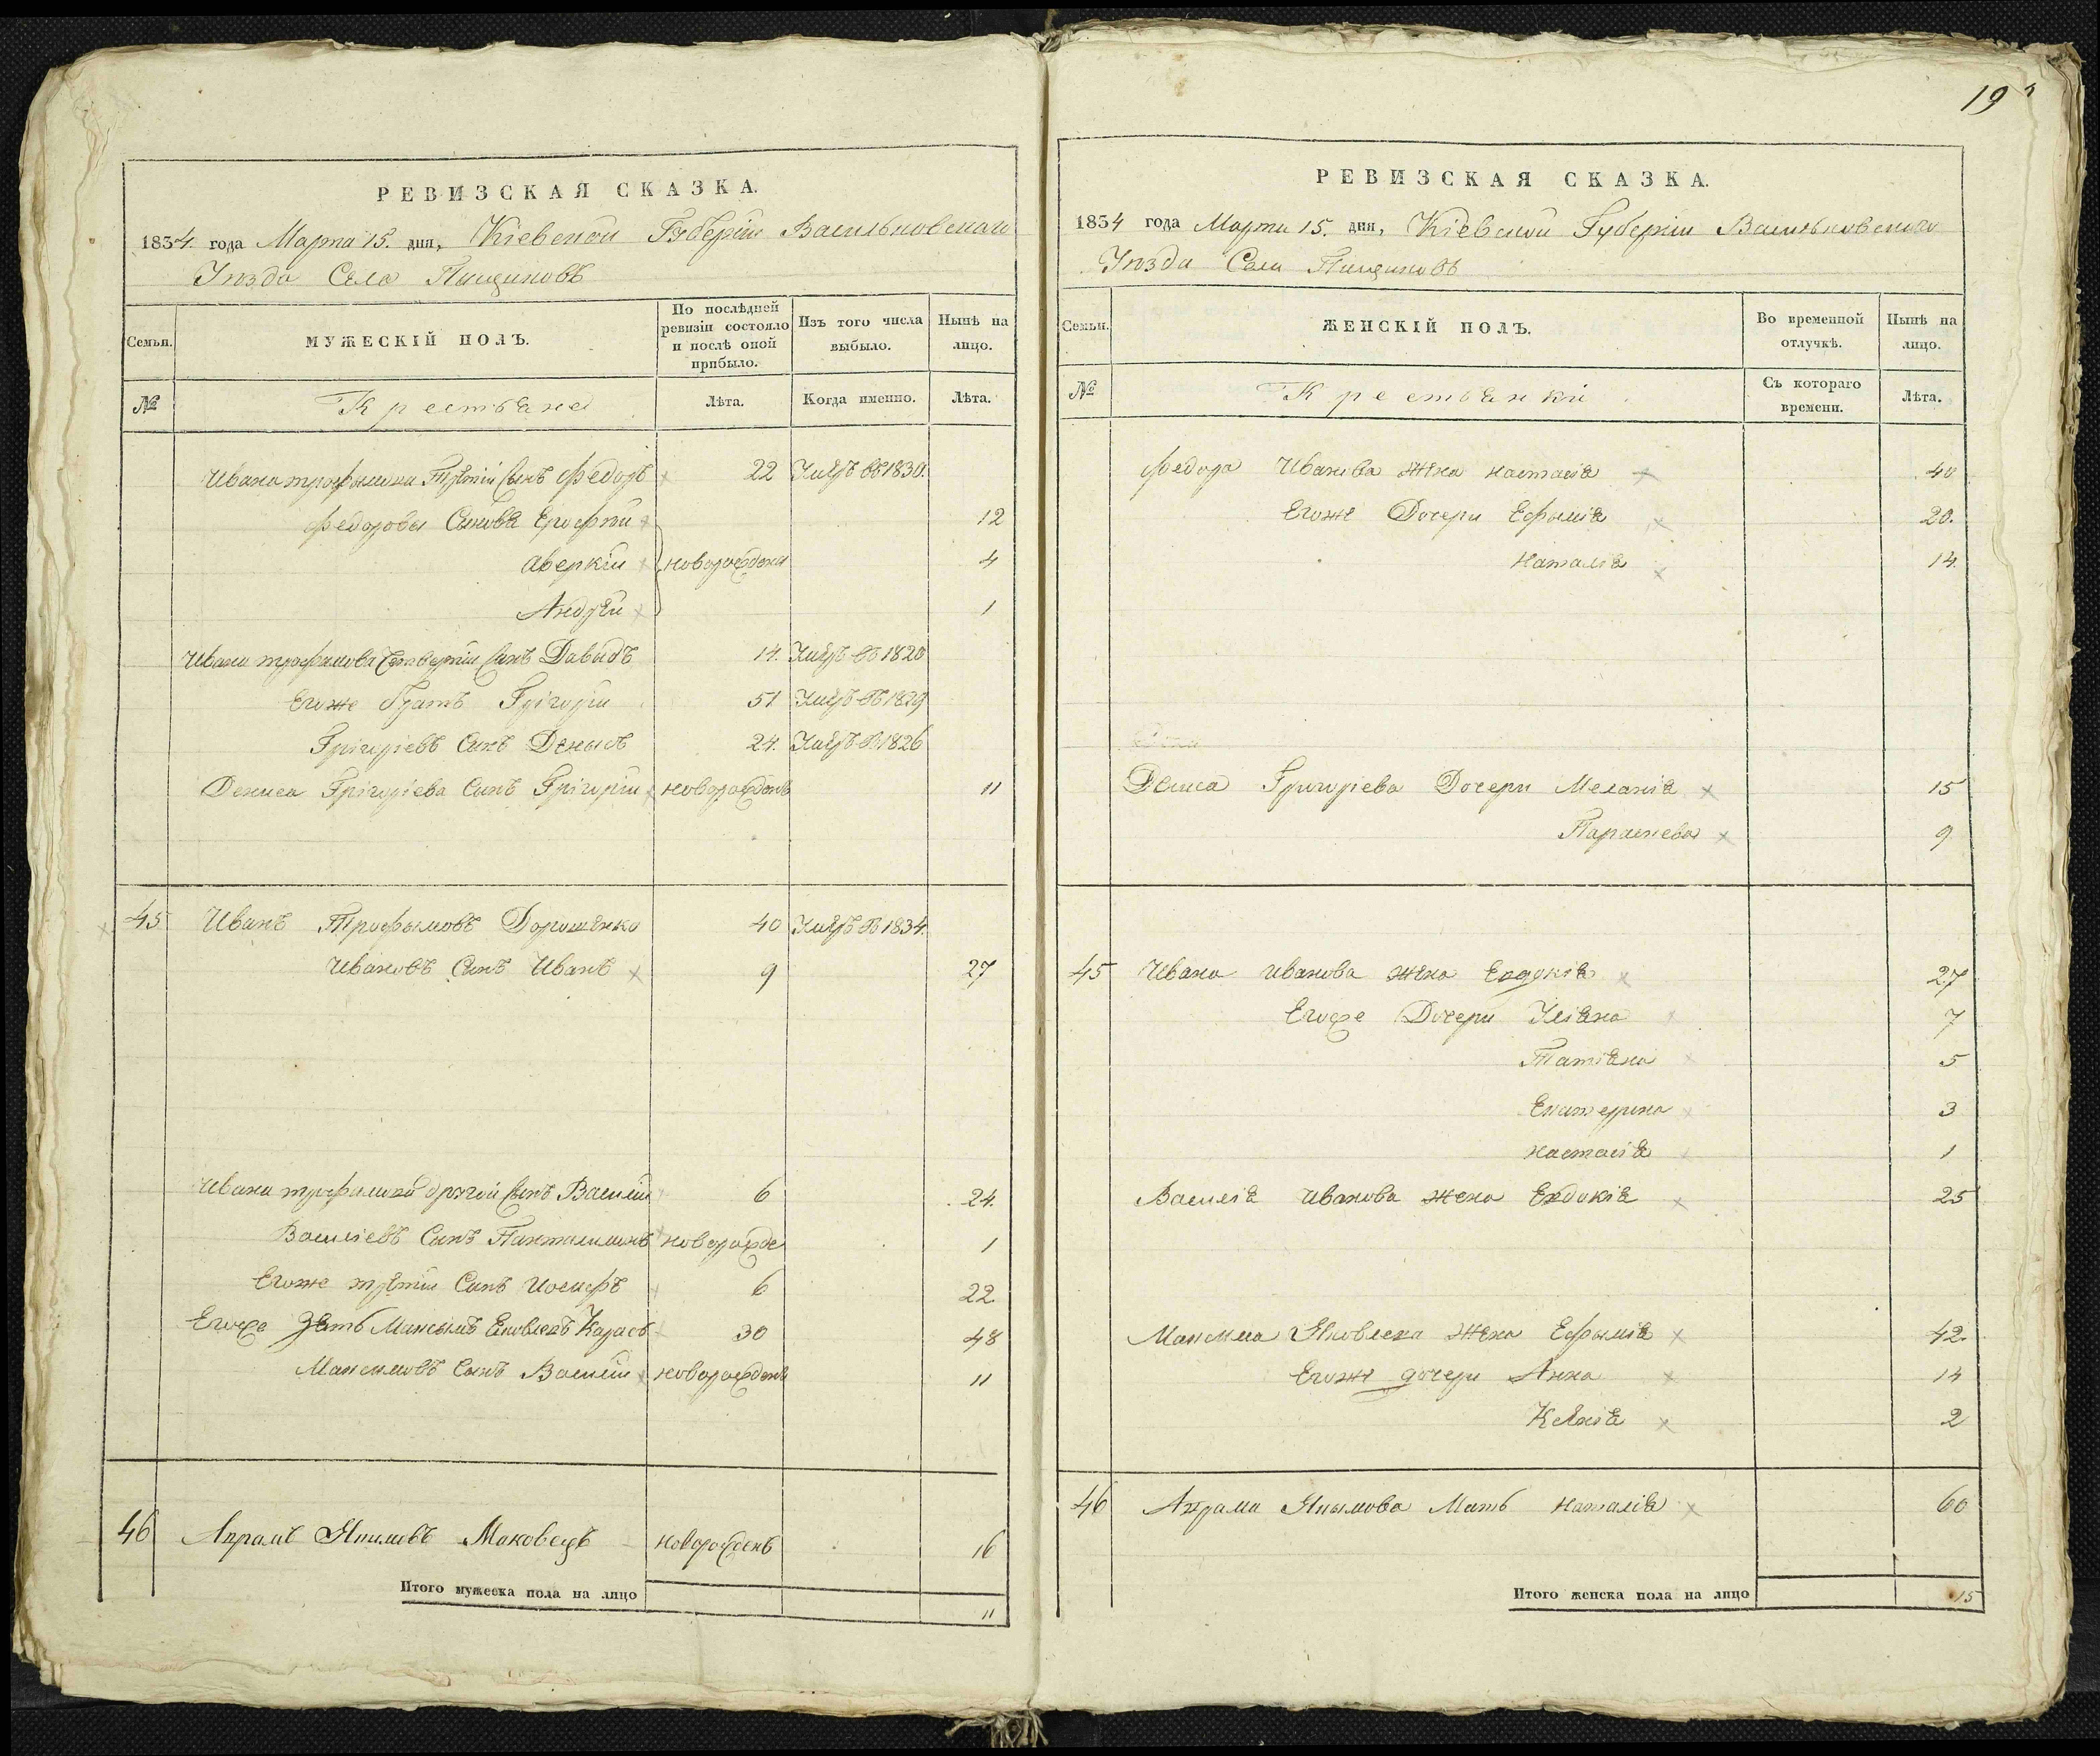 РЕВИЗСКАЯ СКАЗКА.
1834 года Марта 15. дня, Кіевской Губерніи Васильковскаго
Уѣзда Села Пищиковъ
Семьи.
МУЖЕСКІЙ ПОЛЪ.
По послѣдней ревизіи состояло и послѣ оной прибыло.
Изъ того числа выбыло.
Нынѣ на лицо.
№
Крестьяне
Лѣта.
Когда именно.
Лѣта.
Ивана трофимова Третій Сынъ Федоръ 22 Умеръ въ 1830.
Федоровы Сыновя Ерофѣй 12
Аверкій новорожденя 4
Андрѣй 1
Ивана трофимова Четвертій Сынъ Давыдъ 14. Умеръ въ 1820
Егоже братъ Григорій 51 Умеръ въ 1829
Григоріевъ Сынъ Денысъ 24. Умеръ въ 1826
Дениса Григоріева Сынъ Григорій новорожденъ 11
45 Иванъ Трофымовъ Дорошенко 40 Умеръ въ 1834.
Ивановъ Сынъ Иванъ 9 27
Ивана трофимова другой Сынъ Василій 6 24.
Василіевъ Сынъ Панталимонъ новорожде 1
Егоже третій Сынъ Иосифъ 6 22.
Егоже Зять Максымъ Яковлевъ 30 48
Максимовъ Сынъ Василій новорожденъ 11
46 Апрамъ Якимовъ Маковецъ новорожденъ 16
Итого мужеска пола на лицо 11
19
РЕВИЗСКАЯ СКАЗКА.
1834 года Марта 15. дня, Кіевской Губерніи Васильковскаго
Уѣзда Села Пищиковъ
Семьи.
ЖЕНСКІЙ ПОЛЪ.
Во временной отлучкѣ.
Нынѣ на лицо.
№
Крестьянки
Съ котораго времени.
Лѣта.
Федора Иванова Жена Настасія 40
Егоже Дочери Ефымія 20.
Наталія 14.
Дениса Григоріева Дочери Меланія 15
Параскева 9
45 Ивана Иванова Жена Евдокія 27
Егоже Дочери Уліяна 7
Татіяна 5
Екатерина 3
Настасія 1
Василія Иванова Жена Евдокія 25
Максима Яковлева Жена Ефымія 42.
Егоже дочери Анна 14
Ксѣнія 2
46 Апрама Якымова Мать Наталія 60
Итого женска пола на лицо 15